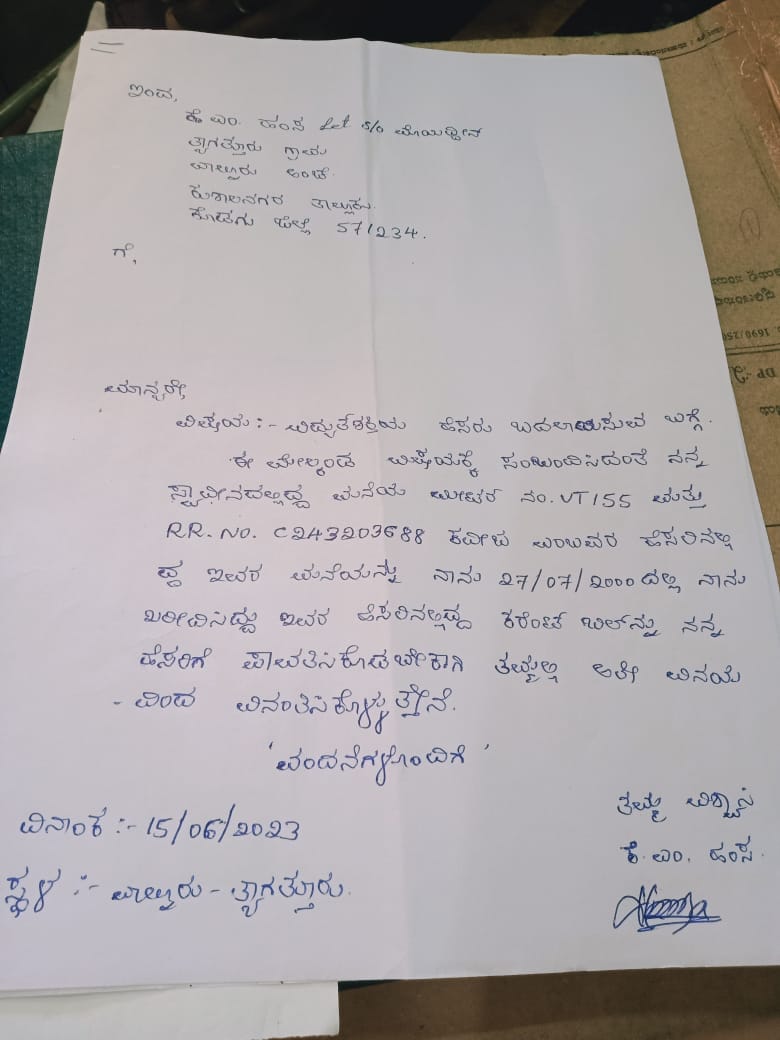 ಇಂದ,
ಕೆ ಎಂ. ಹಂಸ Let S/o ಮೊಯಿದ್ದೀನ್
ತ್ಯಾಗತ್ತೂರು ಗ್ರಾಮ
ವಾಲ್ನೂರು ಅಂಚೆ.
ಕುಶಾಲನಗರ ತಾಲ್ಲೂಕು.
ಕೊಡಗು ಜಿಲ್ಲೆ 571234.
ಗೆ,
ಮಾನ್ಯರೇ,
ವಿಷಯ :- ವಿದ್ಯುತಶಕ್ತಿಯ ಹೆಸರು ಬದಲಾಯಿಸುವ ಬಗ್ಗೆ.
ಈ ಮೇಲ್ಕಂಡ ವಿಷಯಕ್ಕೆ ಸಂಬಂದಿಸಿದಂತೆ ನನ್ನ
ಸ್ವಾಧೀನದಲ್ಲಿದ್ದ ಮನೆಯ ಮೀಟರ್ ನಂ. VT155 ಮತ್ತು
RR. NO. C243203688 ಎಂಬುವರ ಹೆಸರಿನಲ್ಲಿ
ದ್ದ ಇವರ ಮನೆಯನ್ನು ನಾನು 27/07/2000 ದಲ್ಲಿ ನಾನು
ಖರೀದಿಸಿದ್ದು ಇವರ ಹೆಸರಿನಲ್ಲಿದ್ದ ಕರೆಂಟ್ ಬಿಲ್‌ನ್ನು ನನ್ನ
ಹೆಸರಿಗೆ ಪಾವತಿಸಿಕೊಡಬೇಕಾಗಿ ತಮ್ಮಲ್ಲಿ ಅತೀ ವಿನಯ
- ದಿಂದ ವಿನಂತಿಸಿಕೊಳ್ಳುತ್ತೇನೆ.
'ವಂದನೆಗಳೊಂದಿಗೆ'
ತಮ್ಮ ವಿಶ್ವಾಸಿ
ದಿನಾಂಕ :- 15/06/2023
ಕೆ. ಎಂ. ಹಂಸ.
ಸ್ಥಳ :- ವಾಲ್ನೂರು - ತ್ಯಾಗತ್ತೂರು.